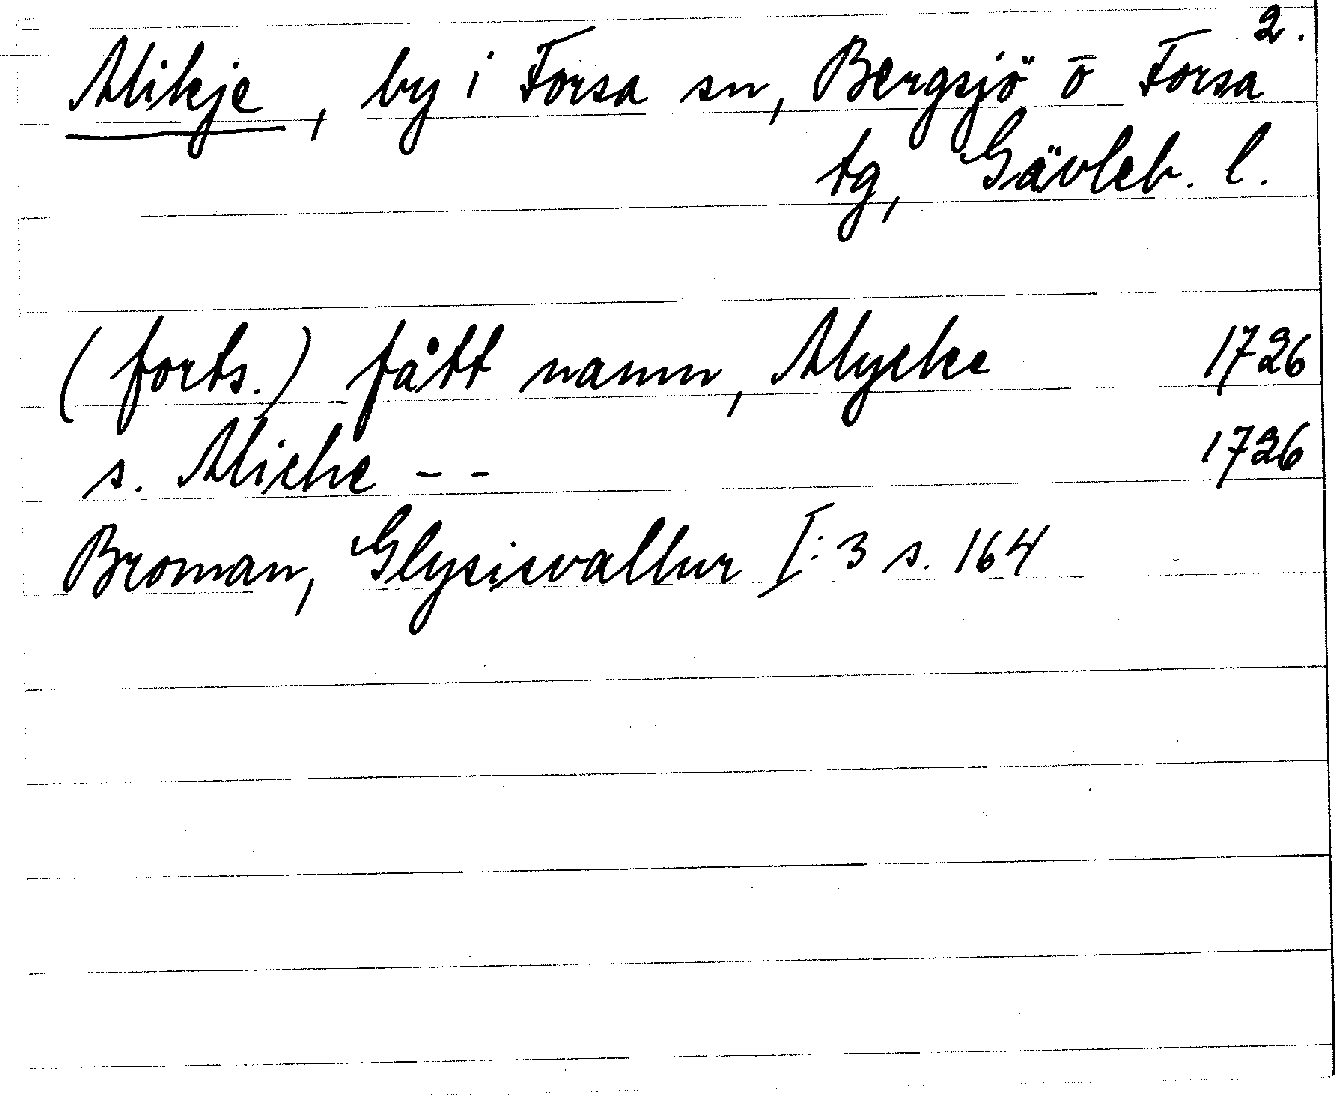 2.
Mikje, by i Forsa sn, Bergsjö o Forsa
tg, Gävleb. l.
(forts.) fått namn, Mycke 1726
s. Miche - - 1726
Broman, Glysisvallur I:3 s. 164